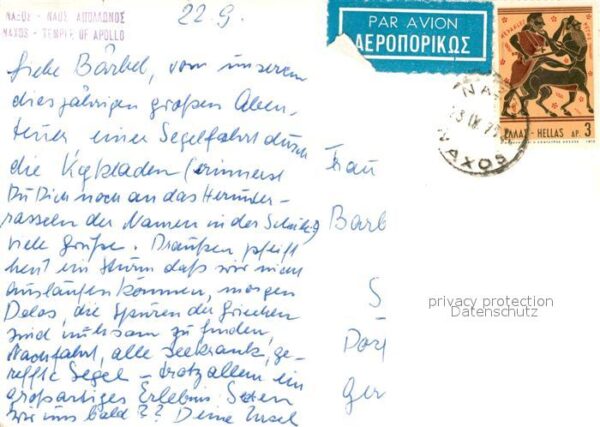 ΝΑΞΟΣ - ΝΑΟΣ ΑΠΟΛΛΩΝΟΣ
NAXOS - TEMPLE OF APOLLO
22.9.
PAR AVION
ΑΕΡΟΠΟΡΙΚΩΣ
ΕΛΛΑΣ - HELLAS ΔΡ. 3
NAXOS
Liebe Bärbel, von unserem
diesjährigen großen Aben-
teuer, einer Segelfahrt durch
die Kykladen (erinnerst
Du Dich noch an das Herunter-
rasseln der Namen in der Schule?)
viele Grüße. Draußen pfeift
heut ein Sturm daß wir nicht
auslaufen können, morgen
Delos, die Spuren der Griechen
sind mühsam zu finden,
Nachtfahrt, alle seekrank, ge-
reffte Segel - trotz allem ein
großartiges Erlebnis. Sehen
wir uns bald?? Deine
Frau
Barb
S
Dorf
Ger
privacy protection
Datenschutz